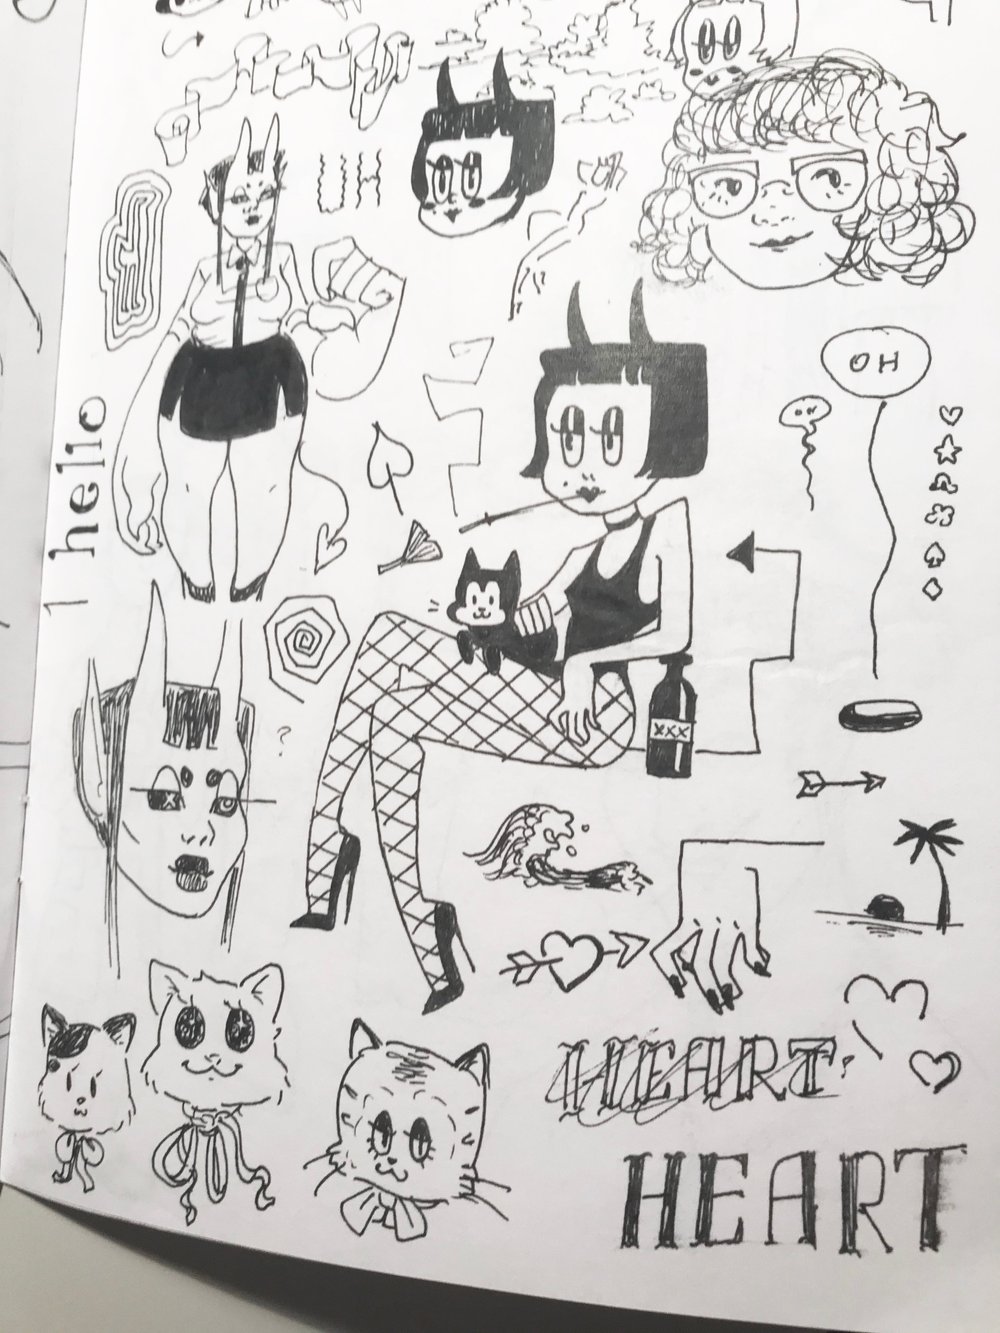 UH
OH
hello
?
XXX
HEART
HEART